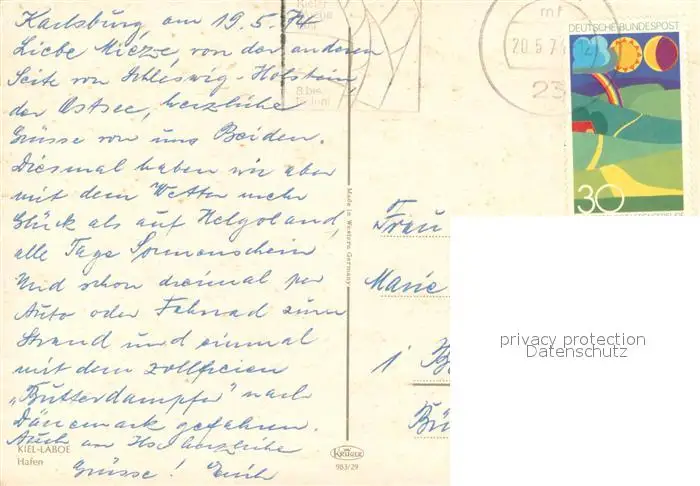 Karlsburg am 19.5.74
Liebe Miezze, von der anderen
Seite von Schleswig-Holstein,
der Ostsee, herzliche
Grüsse von uns Beiden.
Diesmal haben wir aber
mit dem Wetter mehr
Glück als auf Helgoland,
alle Tage Sonnenschein
Und schon dreimal per
Auto oder Fahrrad zum
Strand und einmal
mit dem zollfreien
„Butterdampfer" nach
Dänemark gefahren.
Auch an herzliche
Grüsse! Erich
KIEL-LABOE
Hafen
Kieler
8. bis
Juni
Made in Western Germany
KRÜGER
983/29
mf
20.5.7
23
DEUTSCHE BUNDESPOST
30
Frau
Marie
privacy protection
Datenschutz